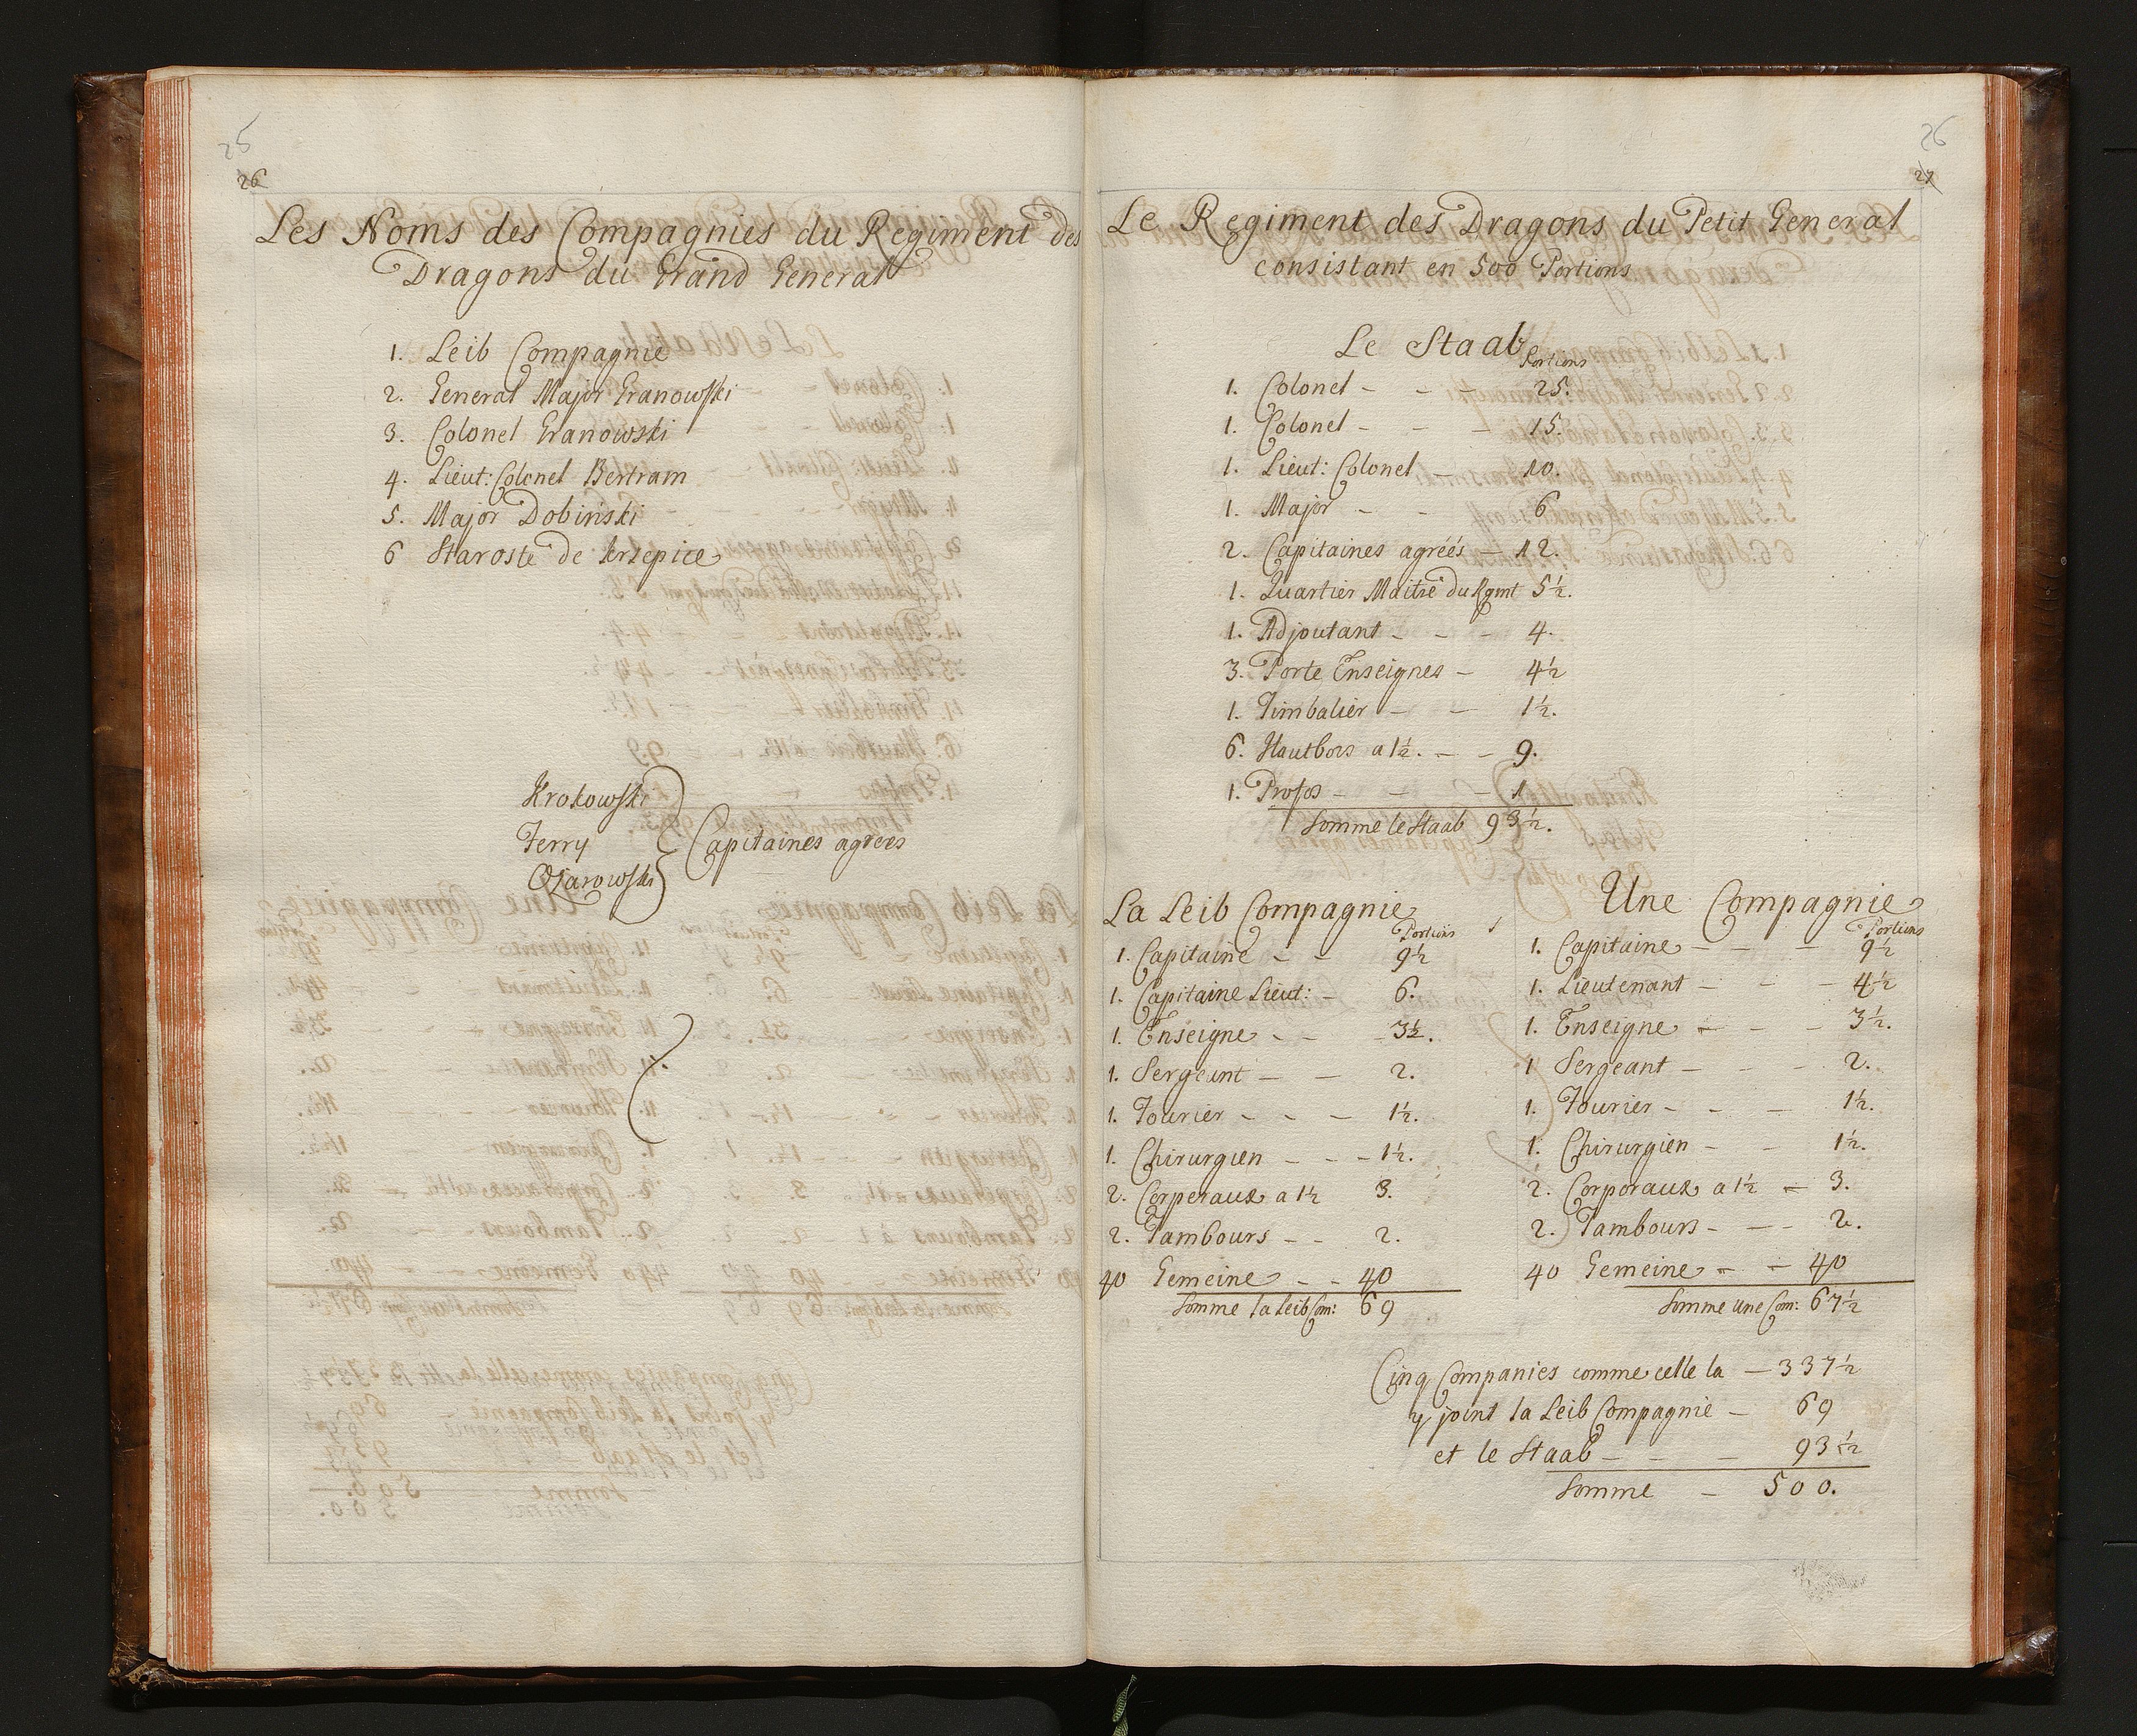 25
26
Les Noms des Compagnies du Regiment des
Dragons du Grand General
1. Leib Compagnie
2. General Major Granowski
3. Colonel Granowski
4. Lieut: Colonel Bertram
5. Major Dobinski
6 Staroste de
Krokowski
Ferry
Ozarowski
Capitaines agrees
26
27
Le Regiment des Dragons du Petit General
consistant en 500 Portions
Le Staab
Portions
1. Colonel - - 25.
1. Colonel - - - 15.
1. Lieut: Colonel - 10.
1. Major - - 6
2. Capitaines agréés - 12.
1. Quartier Maitre du Rgmt 5½.
1. Adjoutant - - - 4.
3. Porte Enseignes - 4½
1. Timbalier - - 1½.
6. Hautbois a 1½. - - 9.
1. Profos - - - 1
Somme le Staab 93½.
La Leib Compagnie
Portions
1. Capitaine - - 9½
1. Capitaine Lieut: - 6.
1. Enseigne - - 3½.
1. Sergeant - - 2.
1. Fourier - - - 1½.
1. Chirurgien - - - 1½.
2. Corperaux a 1½ 3.
2. Tambours - - 2.
40 Gemeine - - 40
Somme la Leib Com: 69
Une Compagnie
Portions
1. Capitaine - - - 9½
1. Lieutenant - - - 4½
1. Enseigne - - - 3½.
1 Sergeant - - - 2.
1. Fourier - - - 1½.
1. Chirurgien - - 1½.
2. Corporaux a 1½ - 3.
2. Tambours - - - 2.
40 Gemeine - - 40
Somme une Com: 67½
Cinq Companies comme celle la - 337½
y joint la Leib Compagnie - 69
et le Staab - - - 93½
Somme - 500.